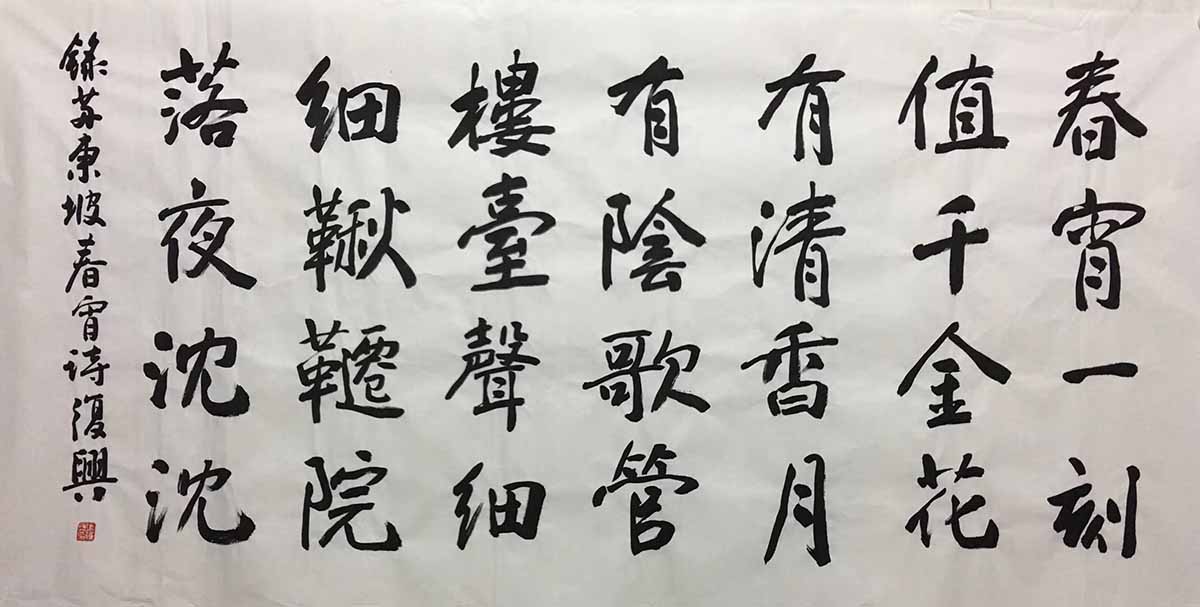 春宵一刻
值千金花
有清香月
有陰歌管
樓臺聲細
細鞦韆院
落夜沈沈
錄苏東坡春宵诗復興